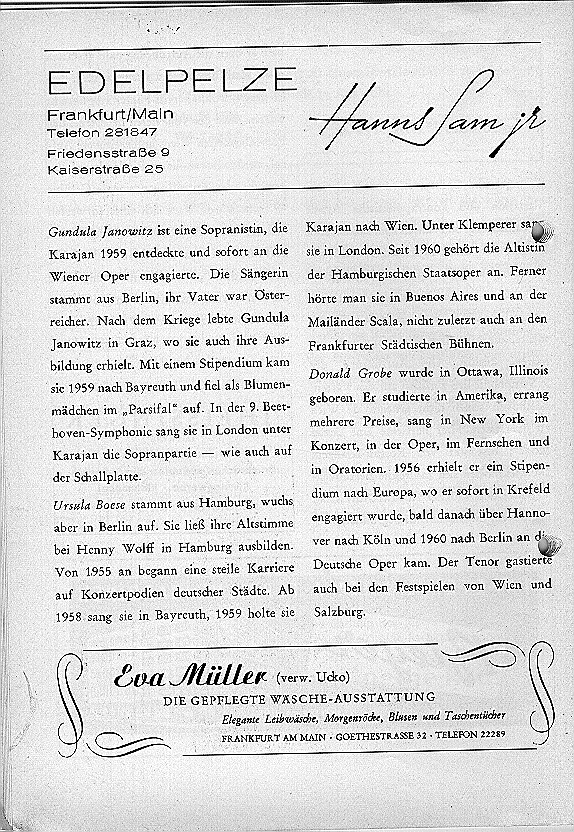 EDELPELZE
Frankfurt/Main
Telefon 281847
Friedensstraße 9
Kaiserstraße 25
Hanns Sam jr
Gundula Janowitz ist eine Sopranistin, die
Karajan 1959 entdeckte und sofort an die
Wiener Oper engagierte. Die Sängerin
stammt aus Berlin, ihr Vater war Öster-
reicher. Nach dem Kriege lebte Gundula
Janowitz in Graz, wo sie auch ihre Aus-
bildung erhielt. Mit einem Stipendium kam
sie 1959 nach Bayreuth und fiel als Blumen-
mädchen im „Parsifal“ auf. In der 9. Beet-
hoven-Symphonie sang sie in London unter
Karajan die Sopranpartie — wie auch auf
der Schallplatte.
Ursula Boese stammt aus Hamburg, wuchs
aber in Berlin auf. Sie ließ ihre Altstimme
bei Henny Wolff in Hamburg ausbilden.
Von 1955 an begann eine steile Karriere
auf Konzertpodien deutscher Städte. Ab
1958 sang sie in Bayreuth, 1959 holte sie
Karajan nach Wien. Unter Klemperer sang
sie in London. Seit 1960 gehört die Altistin
der Hamburgischen Staatsoper an. Ferner
hörte man sie in Buenos Aires und an der
Mailänder Scala, nicht zuletzt auch an den
Frankfurter Städtischen Bühnen.
Donald Grobe wurde in Ottawa, Illinois
geboren. Er studierte in Amerika, errang
mehrere Preise, sang in New York im
Konzert, in der Oper, im Fernsehen und
in Oratorien. 1956 erhielt er ein Stipen-
dium nach Europa, wo er sofort in Krefeld
engagiert wurde, bald danach über Hanno-
ver nach Köln und 1960 nach Berlin an die
Deutsche Oper kam. Der Tenor gastierte
auch bei den Festspielen von Wien und
Salzburg.
Eva Müller (verw. Ucko)
DIE GEPFLEGTE WÄSCHE-AUSSTATTUNG
Elegante Leibwäsche, Morgenröcke, Blusen und Taschentücher
FRANKFURT AM MAIN · GOETHESTRASSE 32 · TELEFON 22289